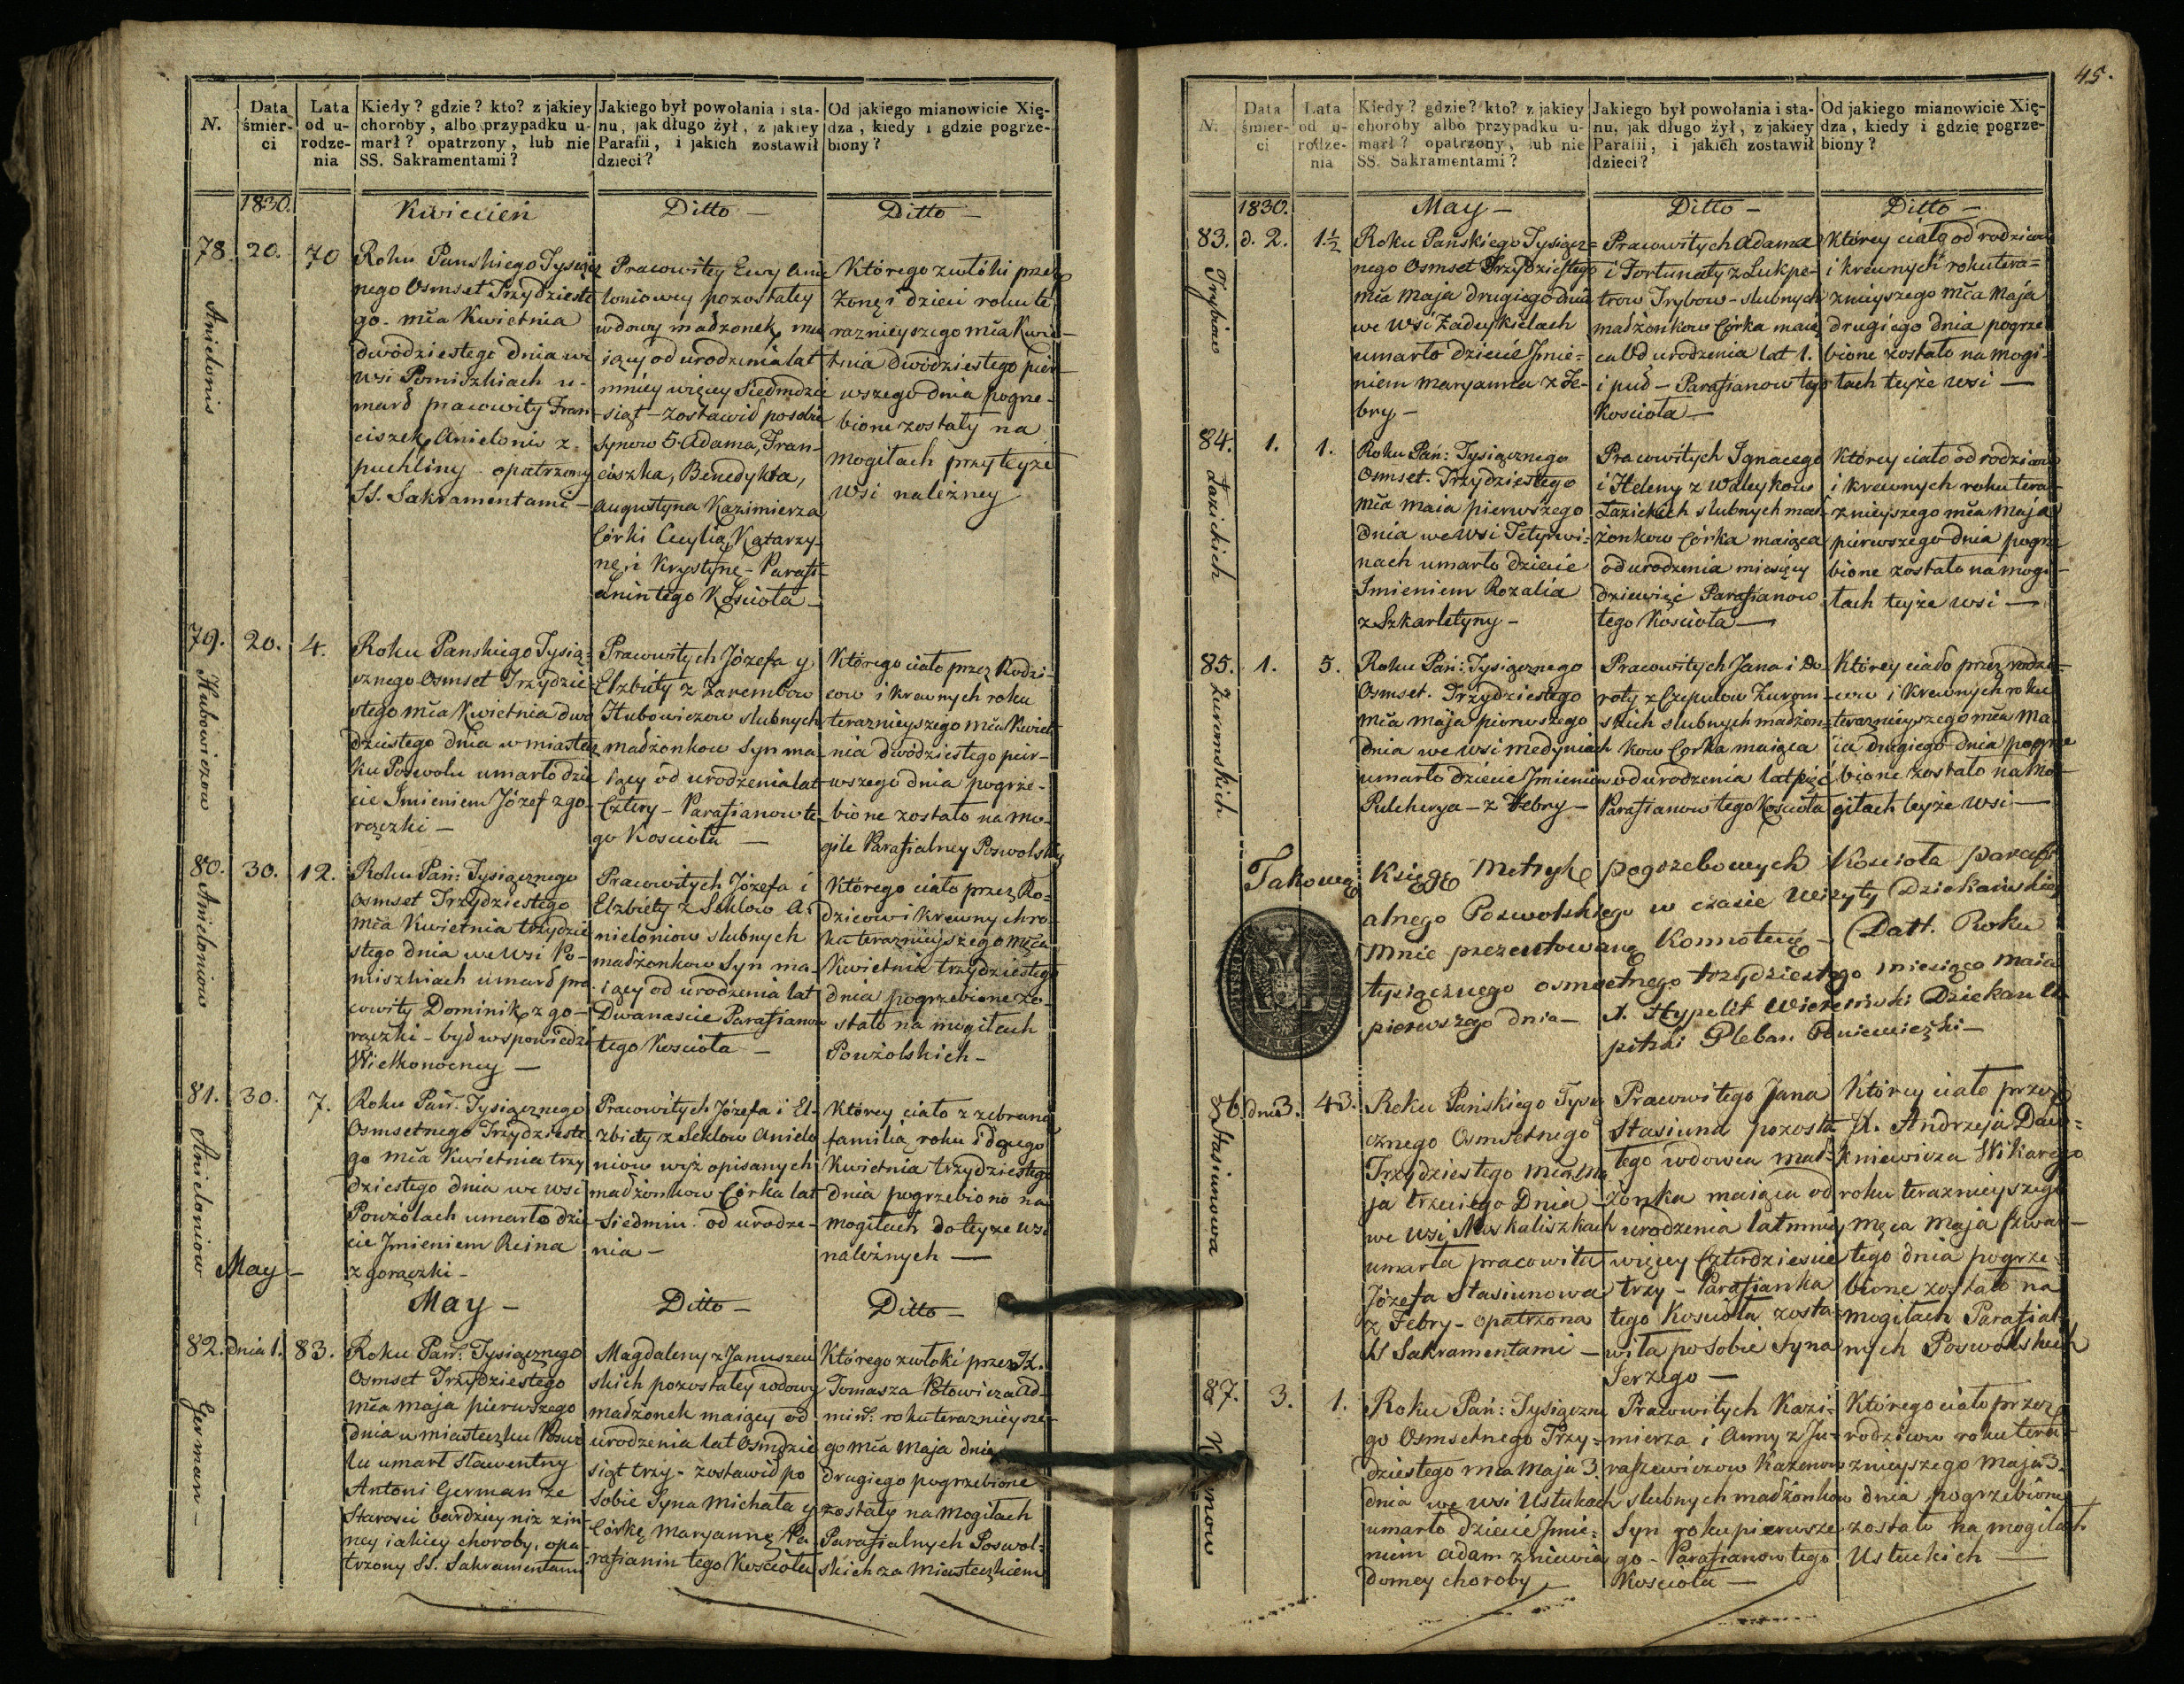 N.
Data śmier-
ci
Lata
od u-
rodze-
nia
Kiedy? gdzie? kto? z jakiey
choroby, albo przypadku u-
marł? opatrzony, lub nie
SS. Sakramentami?
Jakiego był powołania i sta-
nu, jak długo żył, z jakiey
Parafii, i jakich zostawił
dzieci?
Od jakiego mianowicie Xię-
dza, kiedy i gdzie pogrze-
biony?
1830.
Kwiecień
Ditto —
Ditto —
78.
Anielonis
20.
70
Roku Panskiego Tysiącz
nego Osmset Trzydzieste
go. mca Kwietnia
dwódziestego dnia we
wsi Pomiszkiach u-
marł pracowity Fran
ciszek Anielonis z
puchliny opatrzony
SS. Sakramentami —
Pracowitey Ewy Anie
loniowey pozostałey
wdowy madżonek, ma
iący od urodzenia lat
mniey więcey Siedmdzie
siąt - zostawił po sobie
Synow 5. Adama, Fran-
ciszka, Benedykta,
Augustyna Kazimierza
Córki Cecylią, Katarzy-
nę, i Krystynę - Parafi
anin tego Kościoła —
Którego zwłóki przez
Żonę i dzieci roku te
raznieyszego mca Kwie-
tnia dwódziestego pier-
wszego dnia pogrze-
bione zostały na
mogiłach przy teyże
wsi należney
79.
Hubowiczow
20.
4.
Roku Panskiego Tysią-
cznego Osmset Trzydzie
stego mca Kwietnia dwó
dziestego dnia w miastecz
ku Poswolu umarło dzie
cie Imieniem Józef z go
rączki —
Pracowitych Józefa y
Elzbiety z Zarembow
Hubowiczow slubnych
madżonkow Syn ma
iący od urodzenia lat
Cztery - Parafianow te
go Kościoła —
Którego ciało przez Rodzi-
cow i krewnych roku
teraznieyszego mca Kwiet
nia dwódziestego pier-
wszego dnia pogrze-
bione zostało na mo-
gile Parafialney Poswolskiey
80.
Anieloniow
30.
12.
Roku Pań: Tysiącznego
Osmset Trzydziestego
mca Kwietnia trzydzie
stego dnia we wsi Po-
miszkiach umarł pra
cowity Dominik z go-
rączki - był w spowiedzi
Wielkonocney —
Pracowitych Józefa i
Elzbiety z Seklow A-
nieloniow slubnych
madżonkow Syn ma-
iący od urodzenia lat
Dwanascie Parafianow
tego Kościoła —
Którego ciało przez Ro-
dzicow i krewnych ro-
ku teraznieyszego mca
Kwietnia trzydziestego
dnia pogrzebione zo-
stało na mogiłach
Powżolskich -
81.
Anieloniow
30.
7.
Roku Pań: Tysiącznego
Osmsetnego Trzydzieste
go mca Kwietnia trzy
dziestego dnia we wsi
Powżolach umarło dzie
cie Imieniem Reina
z gorączki -
Pracowitych Józefa i El-
zbiety z Seklow Anielo
niow wyż opisanych
madżonkow Córka lat
Siedmiu od urodze-
nia -
Którey ciało z zebraną
familią roku i tegoż
Kwietnia trzydziestego
dnia pogrzebiono na
mogiłach do teyze wsi
należnych —
May —
May —
Ditto —
Ditto —
82.
German —
dnia 1.
83.
Roku Pań: Tysiącznego
Osmset Trzydziestego
mca Maja pierwszego
dnia w miasteczku Poswo
lu umarł Sławentny
Antoni German ze
Starosci bardziey niz z in-
ney iakiey choroby, opa
trzony SS. Sakramentami
Magdaleny z Januszew
skich pozostałey wdowy
madżonek maiący od
urodzenia lat Osmdzie
siąt trzy - zostawił po
Sobie Syna Michała y
Córkę Maryannę Pa-
rafianin tego Kościoła
Którego zwłoki przez X.
Tomasza Kotowicza Ad-
min: roku teraznieysze
go mca Maja dnia
drugiego pogrzebione
zostały na Mogiłach
Parafialnych Poswol-
skich za Miasteczkiem
45.
N.
Data
śmier-
ci
Lata
od u-
rodze-
nia
Kiedy? gdzie? kto? z jakiey
choroby albo przypadku u-
marł? opatrzony, lub nie
SS. Sakramentami?
Jakiego był powołania i sta-
nu, jak długo żył, z jakiey
Parafii, i jakich zostawił
dzieci?
Od jakiego mianowicie Xię-
dza, kiedy i gdzie pogrze-
biony?
1830.
May —
Ditto —
Ditto —
83.
Trybiow
d. 2.
1½
Roku Pańskiego Tysiącz=
nego Osmset Trzydziestego
mca Maja drugiego dnia
we wsi Zadeykielach
umarło dziecie Imie=
niem Maryanna z Fe-
bry -
Pracowitych Adama
i Fortunaty z Łukpe-
trow Trybow - slubnych
madżonkow Córka maią
ca od urodzenia lat 1.
i puł - Parafianow tego
Kościoła —
Którey ciało od rodzicow
i krewnych roku tera=
znieyszego mca Maja
drugiego dnia pogrze
bione zostało na mogi-
łach teyże wsi —
84.
Łazickich
1.
1.
Roku Pań: Tysiącznego
Osmset. Trzydziestego
mca Maia pierwszego
dnia we wsi Tetyrwi-
nach umarło dziecie
Imieniem Rozalia
z Szkarletyny -
Pracowitych Ignacego
i Heleny z Waleykow
Łazickich slubnych mad-
żonkow Córka maiąca
od urodzenia miesięcy
dziewięć Parafianow
tego Kościoła —
Którey ciało od rodzicow
i krewnych roku tera-
znieyszego mca Maja
pierwszego dnia pogrze
bione zostało na mogi-
łach teyże wsi —
85.
Żuromskich
1.
5.
Roku Pań: Tysiącznego
Osmset. Trzydziestego
mca Maja pierwszego
dnia we wsi Medyniach
umarło dziecie Imieniem
Pulcherya - z Febry -
Pracowitych Jana i Do-
roty z Czepulow Żurom-
skich slubnych madżon-
kow Corka maiąca
od urodzenia lat pięć
Parafianow tego Kościoła
Którey ciało przez rodzi-
cow i Krewnych roku
teraznieyszego mca Ma-
ia drugiego dnia pogrze
bione zostało na Mo-
giłach teyże wsi —
Takową Księgę Metryk pogrzebowych Kościoła Parafi
alnego Poswolskiego w czasie Wizyty Dziekańskiey
Mnie prezentowaną Konnotuię - Datt. Roku
tysiącznego osmsetnego trzydziestego miesiąca Maia
pierwszego dnia — X. Hypolit Dziekan
Pleban Poniewiezki —
86.
Stasiunowa
dnia 3.
43.
Roku Pańskiego Tysią
cznego Osmsetnego
Trzydziestego mca Ma
ja trzeciego Dnia
we wsi Moskaliszkach
umarła pracowita
Józefa Stasiunowa
z Febry - opatrzona
SS Sakramentami —
Pracowitego Jana
Stasiuna pozosta
łego wdowca mał-
żonka maiąca od
urodzenia lat mniey
więcey Czterdziescie
trzy - Parafianka
tego Kościoła zosta-
wiła po Sobie Syna
Jerzego —
Którey ciało przez
X. Andrzeja Daw-
kniewicza Wikarego
roku teraznieyszego
męca Maja czwar-
tego dnia pogrze-
bione zostało na
mogiłach Parafial-
nych Poswolskich
87.
3.
1.
Roku Pań: Tysiączne
go Osmsetnego Trzy=
dziestego mca Maja 3.
dnia we wsi Ustukach
umarło dziecie Imie=
niem Adam z niewia
domey choroby
Pracowitych Kazi-
mierza i Anny z Ju-
raszewiczow Kazenow
slubnych madżonkow
Syn roku pierwsze
go - Parafianow tego
Kościoła —
Którego ciało przez
rodzicow roku tera-
znieyszego Maja 3.
dnia pogrzebione
zostało na mogiłach
Ustuckich —